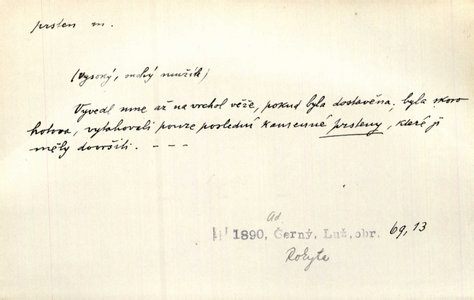 prsten m.
(Vysoký, suchý mužík)
Vyvedl mne až na vrchol věže, pokud byla dostavěna; byla skoro
hotova, vytahovali pouze poslední kamenné prsteny, které ji
měly dovršiti. - - -
Ad.
1890, Černý, Luž. obr. 69, 13
Rokyta